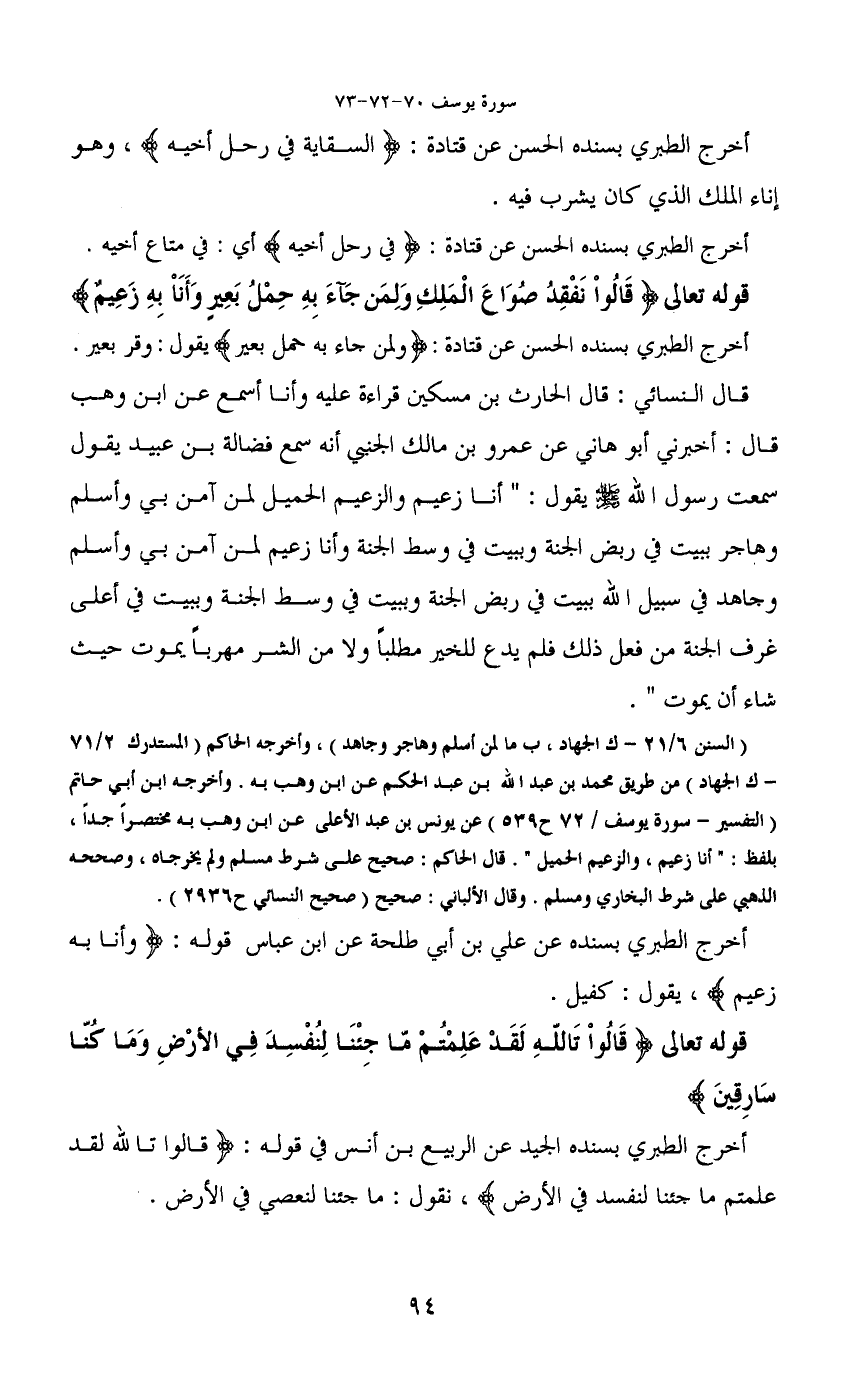 سورة يوسف ٧٠-٧٢-٧٣
أخرج الطبري بسنده الحسن عن قتادة : ﴿ السقاية في رحل أخيه ﴾ ، وهو
إناء الملك الذي كان يشرب فيه .
أخرج الطبري بسنده الحسن عن قتادة : ﴿ في رحل أخيه ﴾ أي : في متاع أخيه .
قوله تعالى ﴿ قَالُواْ نَفْقِدُ صُوَاعَ الْمَلِكِ وَلِمَن جَآءَ بِهِ حِمْلُ بَعِيرٍ وَأَنَاْ بِهِ زَعِيمٌ ﴾
أخرج الطبري بسنده الحسن عن قتادة : ﴿ ولمن جاء به حمل بعير ﴾ يقول : وقر بعير .
قال النسائي : قال الحارث بن مسكين قراءة عليه وأنا أسمع عن ابن وهب
قال : أخبرني أبو هاني عن عمرو بن مالك الجنبي أنه سمع فضالة بن عبيد يقول
سمعت رسول الله ﷺ يقول : " أنا زعيم والزعيم الحميل لمن آمن بي وأسلم
وهاجر ببيت في ربض الجنة وببيت في وسط الجنة وأنا زعيم لمن آمن بي وأسلم
وجاهد في سبيل الله ببيت في ربض الجنة وببيت في وسط الجنة وببيت في أعلى
غرف الجنة من فعل ذلك فلم يدع للخير مطلباً ولا من الشر مهرباً يموت حيث
شاء أن يموت " .
( السنن ٢١/٦ – ك الجهاد ، ب ما لمن أسلم وهاجر وجاهد ) ، وأخرجه الحاكم ( المستدرك ٧١/٢
– ك الجهاد ) من طريق محمد بن عبد الله بن عبد الحكم عن ابن وهب به . وأخرجه ابن أبي حاتم
( التفسير – سورة يوسف / ٧٢ ح٥٣٩ ) عن يونس بن عبد الأعلى عن ابن وهب به مختصراً جداً ،
بلفظ : " أنا زعيم ، والزعيم الحميل " . قال الحاكم : صحيح على شرط مسلم ولم يخرجاه ، وصححه
الذهبي على شرط البخاري ومسلم . وقال الألباني : صحيح ( صحيح النسائي ح٢٩٣٦ ) .
أخرج الطبري بسنده عن علي بن أبي طلحة عن ابن عباس قوله : ﴿ وأنا به
زعيم ﴾ ، يقول : كفيل .
قوله تعالى ﴿ قَالُواْ تَاللّهِ لَقَدْ عَلِمْتُمْ مّا جِئْنَا لِنُفْسِدَ فِي الأرْضِ وَمَا كُنّا
سَارِقِينَ ﴾
أخرج الطبري بسنده الجيد عن الربيع بن أنس في قوله : ﴿ قالوا تالله لقد
علمتم ما جئنا لنفسد في الأرض ﴾ ، نقول : ما جئنا لنعصي في الأرض .
٩٤